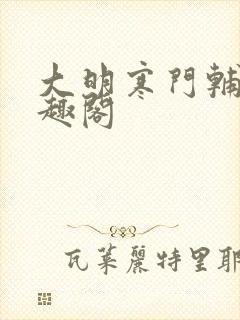 大明寒門輔
趣閣
瓦萊麗特里耶